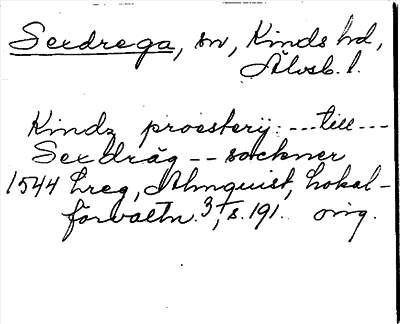 Sexdrega, sn, Kinds hd,
Älvsb. l.
Kindz proesterij: --- till ---
Sexdräg -- sockner
1544 Lreg, Almquist, Lokal-
förvaltn. 3, s. 191. orig.